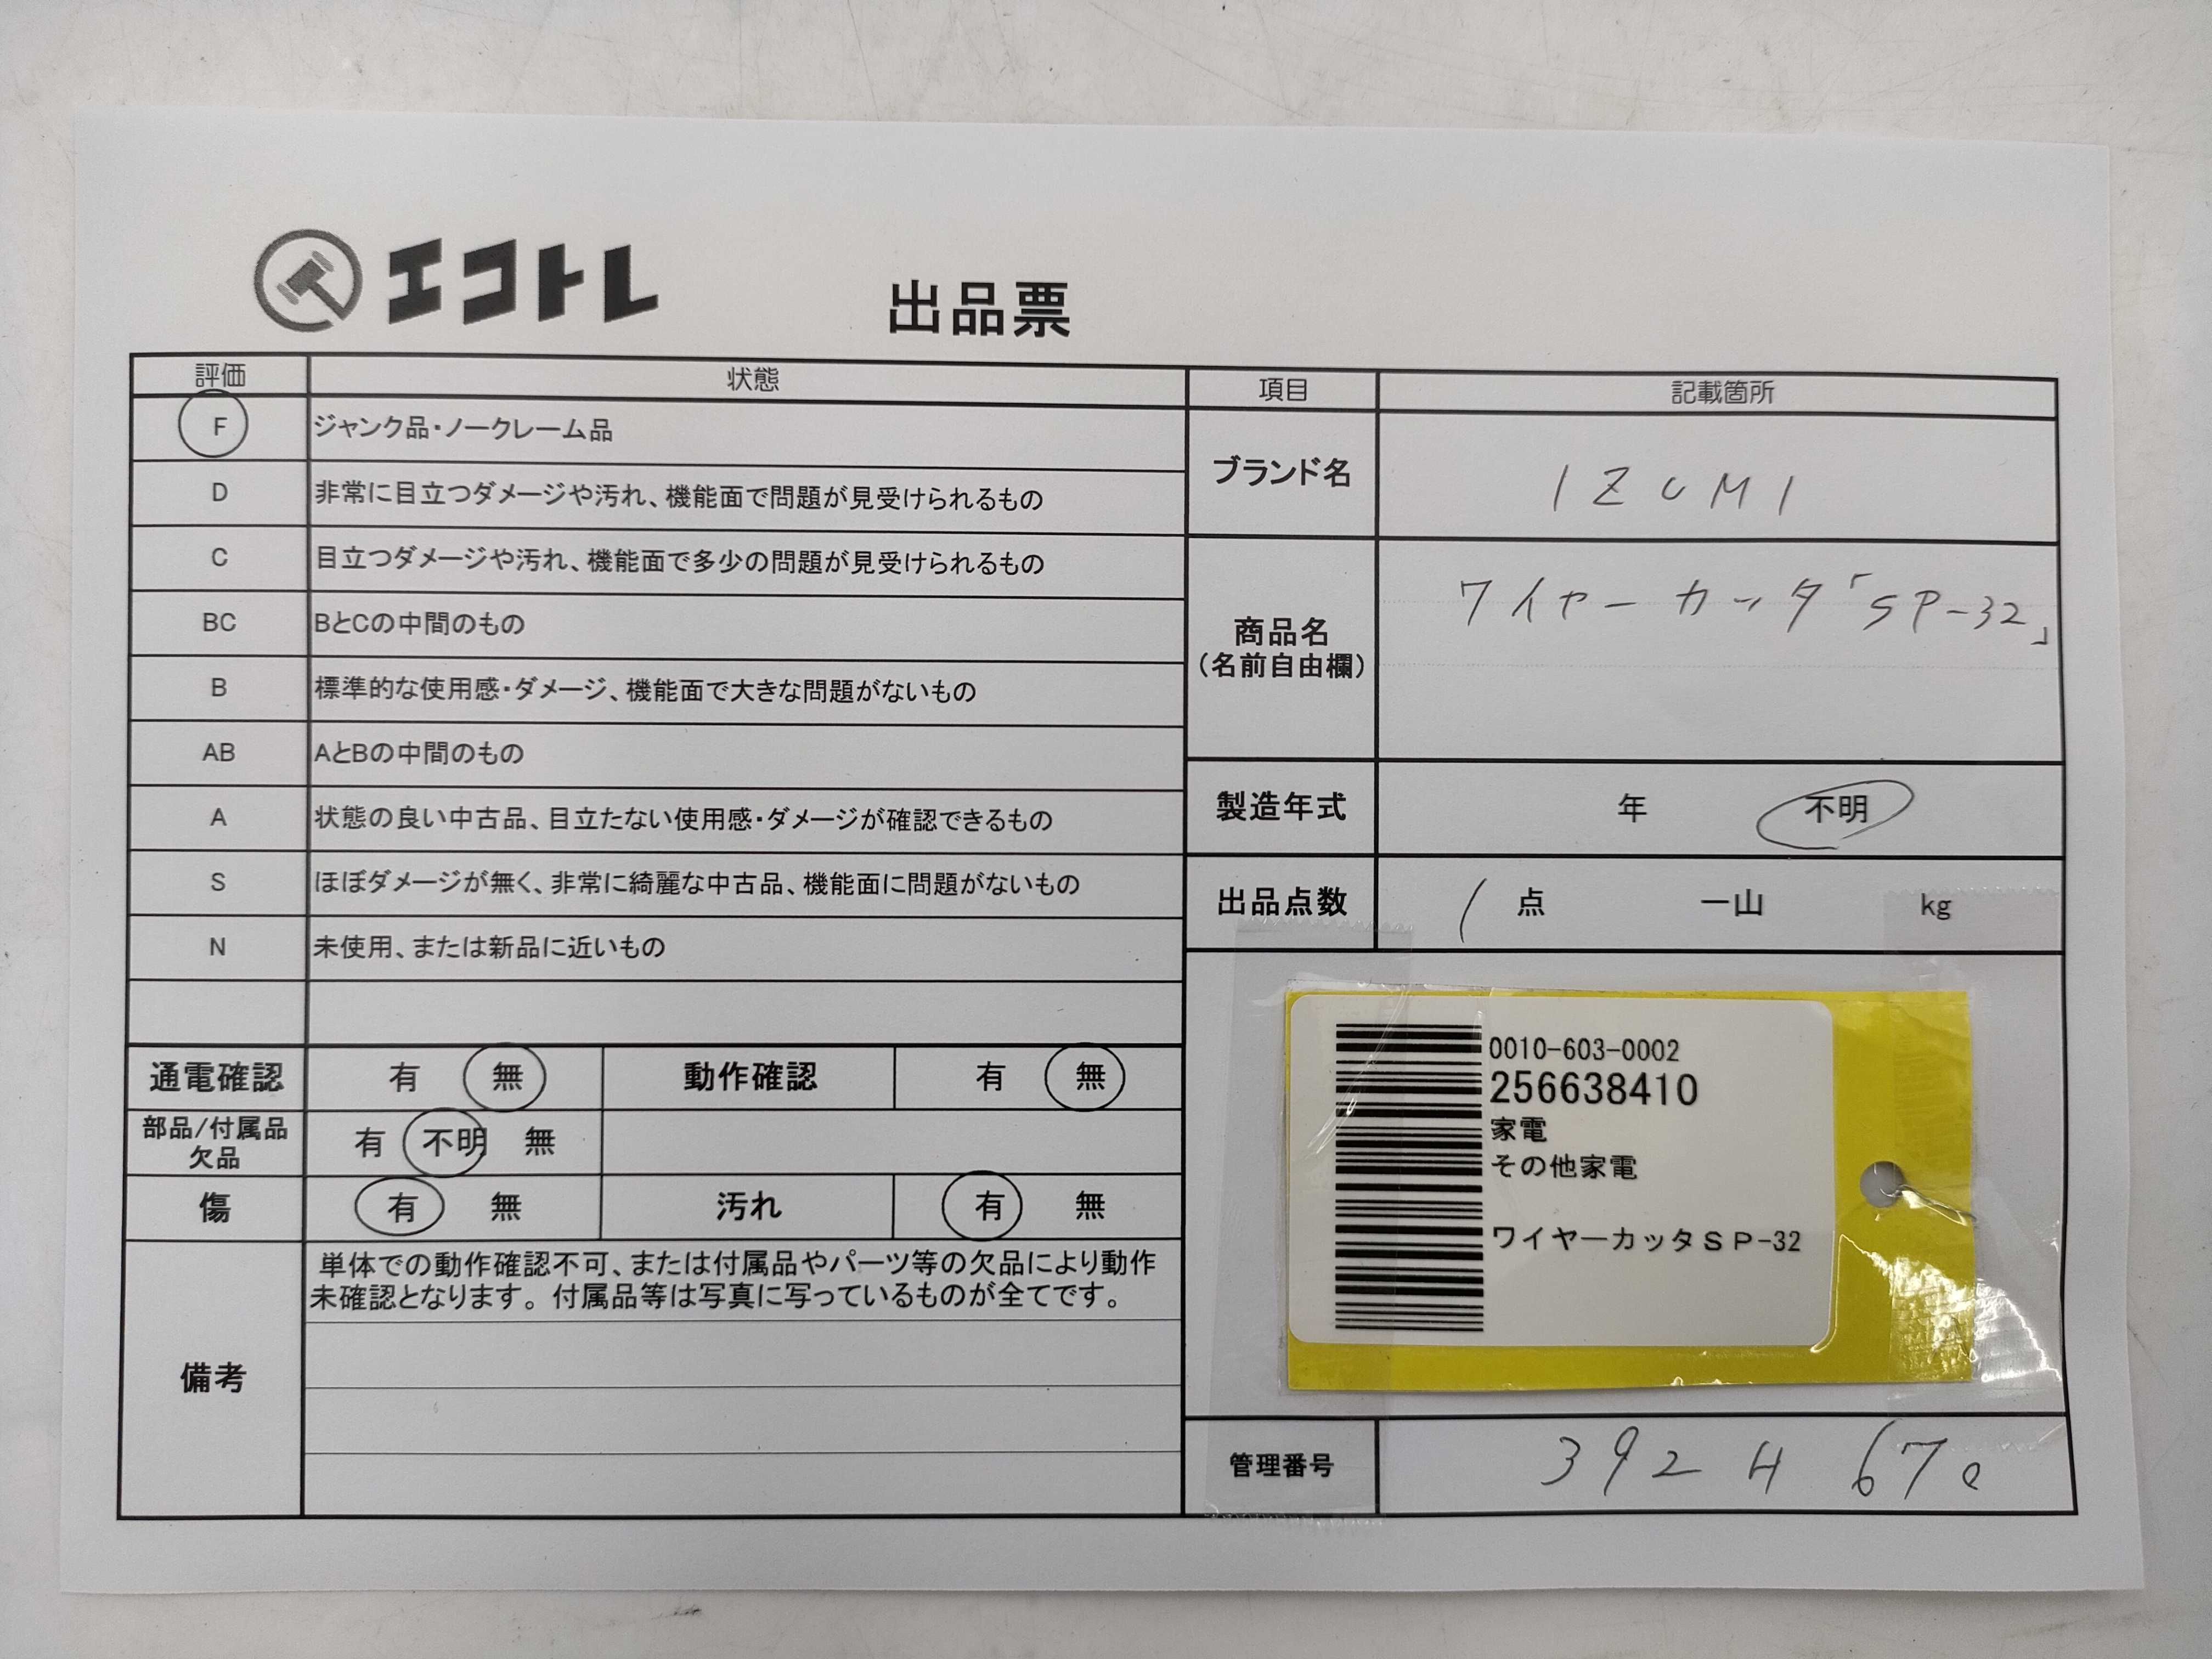 エコトレ
出品票
評価 状態
F ジャンク品・ノークレーム品
D 非常に目立つダメージや汚れ、機能面で問題が見受けられるもの
C 目立つダメージや汚れ、機能面で多少の問題が見受けられるもの
BC BとCの中間のもの
B 標準的な使用感・ダメージ、機能面で大きな問題がないもの
AB AとBの中間のもの
A 状態の良い中古品、目立たない使用感・ダメージが確認できるもの
S ほぼダメージが無く、非常に綺麗な中古品、機能面に問題がないもの
N 未使用、または新品に近いもの
通電確認 有 無 動作確認 有 無
部品/付属品
欠品
有 不明 無
傷 有 無 汚れ 有 無
備考
単体での動作確認不可、または付属品やパーツ等の欠品により動作
未確認となります。付属品等は写真に写っているものが全てです。
項目 記載箇所
ブランド名 IZUMI
商品名
(名前自由欄)
ワイヤーカッタ「SP-32」
製造年式 年 不明
出品点数 1 点 一山 kg
0010-603-0002
256638410
家電
その他家電
ワイヤーカッタＳＰ-32
管理番号 392 H 670